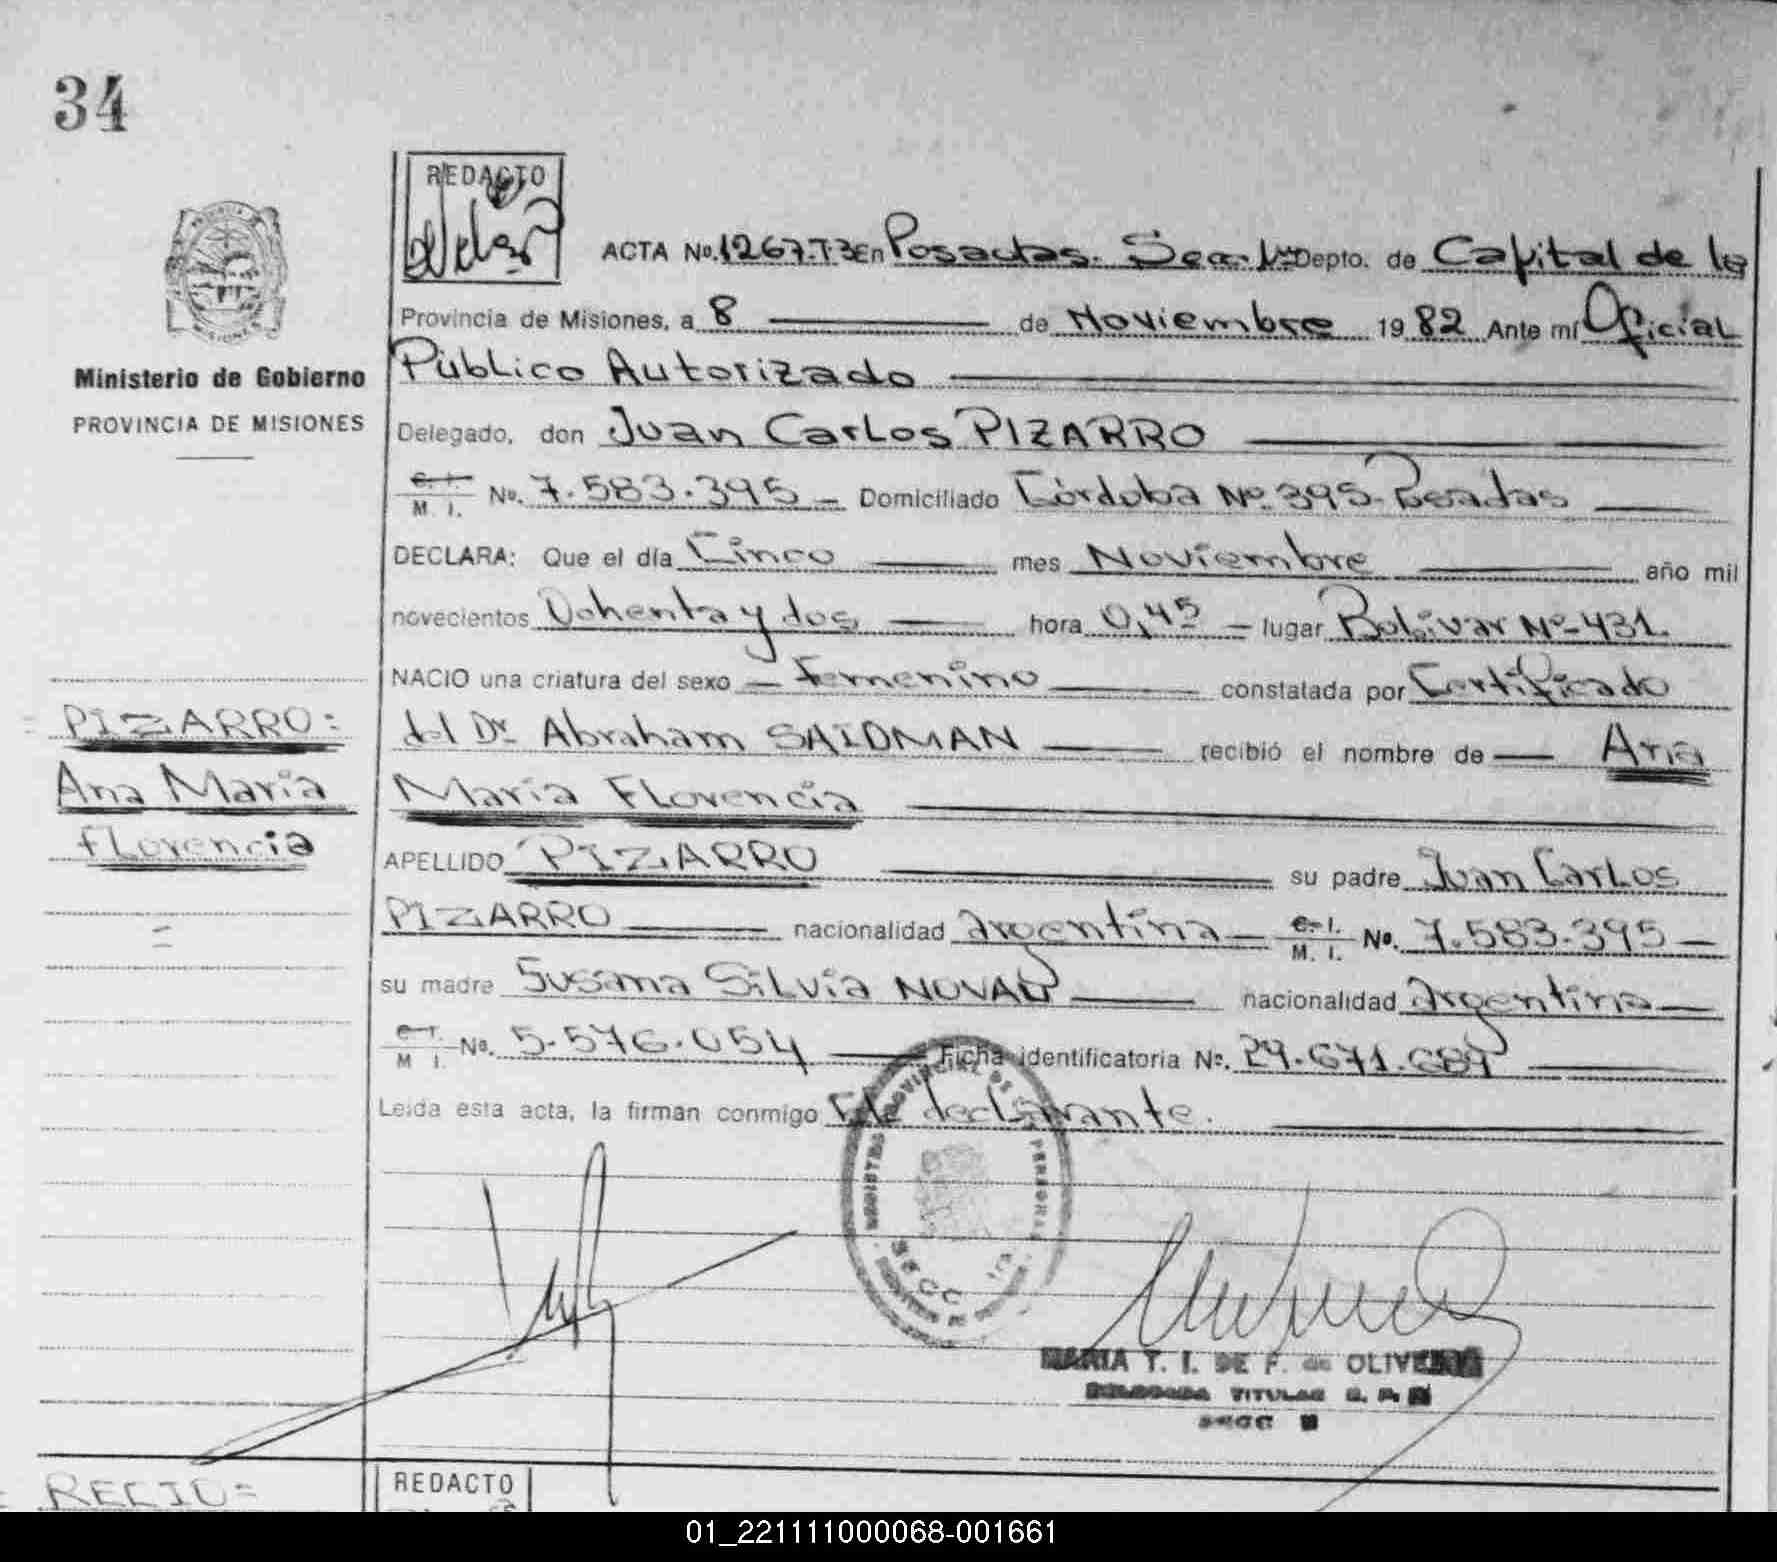 34
REDACTO
ACTA No. 1267.T.3 En Posadas. Secc. 1ra Depto. de Capital de la
Provincia de Misiones, a 8 de Noviembre 1982 Ante mí Oficial
Público Autorizado
Ministerio de Gobierno
PROVINCIA DE MISIONES
Delegado, don Juan Carlos PIZARRO
C. I.
M. I. No. 7.583.395 - Domiciliado Córdoba Nº 395 - Posadas
DECLARA: Que el día Cinco mes Noviembre año mil
novecientos Ochenta y dos hora 0,45 - lugar Bolívar Nº 431.
NACIO una criatura del sexo - Femenino constatada por Certificado
del Dr. Abraham SAIDMAN recibió el nombre de Ana
María Florencia
= PIZARRO:
Ana María
Florencia
=
APELLIDO PIZARRO su padre Juan Carlos
PIZARRO nacionalidad argentina - C. I.
M. I. No. 7.583.395 -
su madre Susana Silvia NOVAU nacionalidad argentina
C. I.
M. I. No. 5.576.054 Ficha identificatoria No. 29.671.689
Leida esta acta, la firman conmigo El declarante.
SECC 1ra
MARIA T. I. DE F. de OLIVEIRA
DELEGADA TITULAR R. P.
SECC
RECIO=
REDACTO
01_221111000068-001661